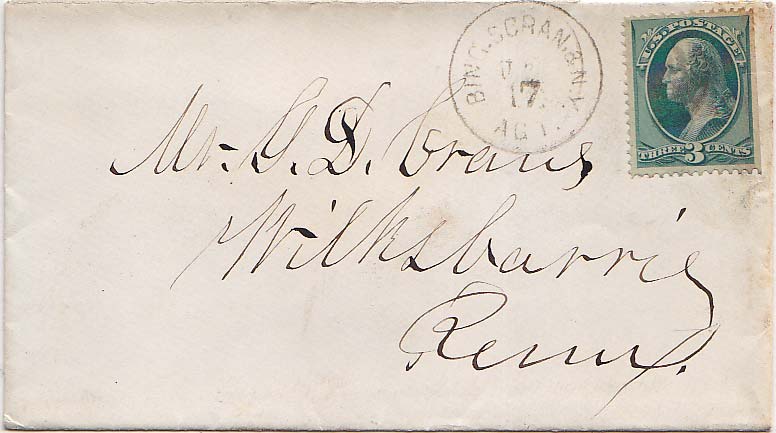 BING. SCRAN. & N.Y.
17
AGT.
U.S. POSTAGE
THREE 3 CENTS
Mr. G. D. Evans
Wilksbarrie
Penn.